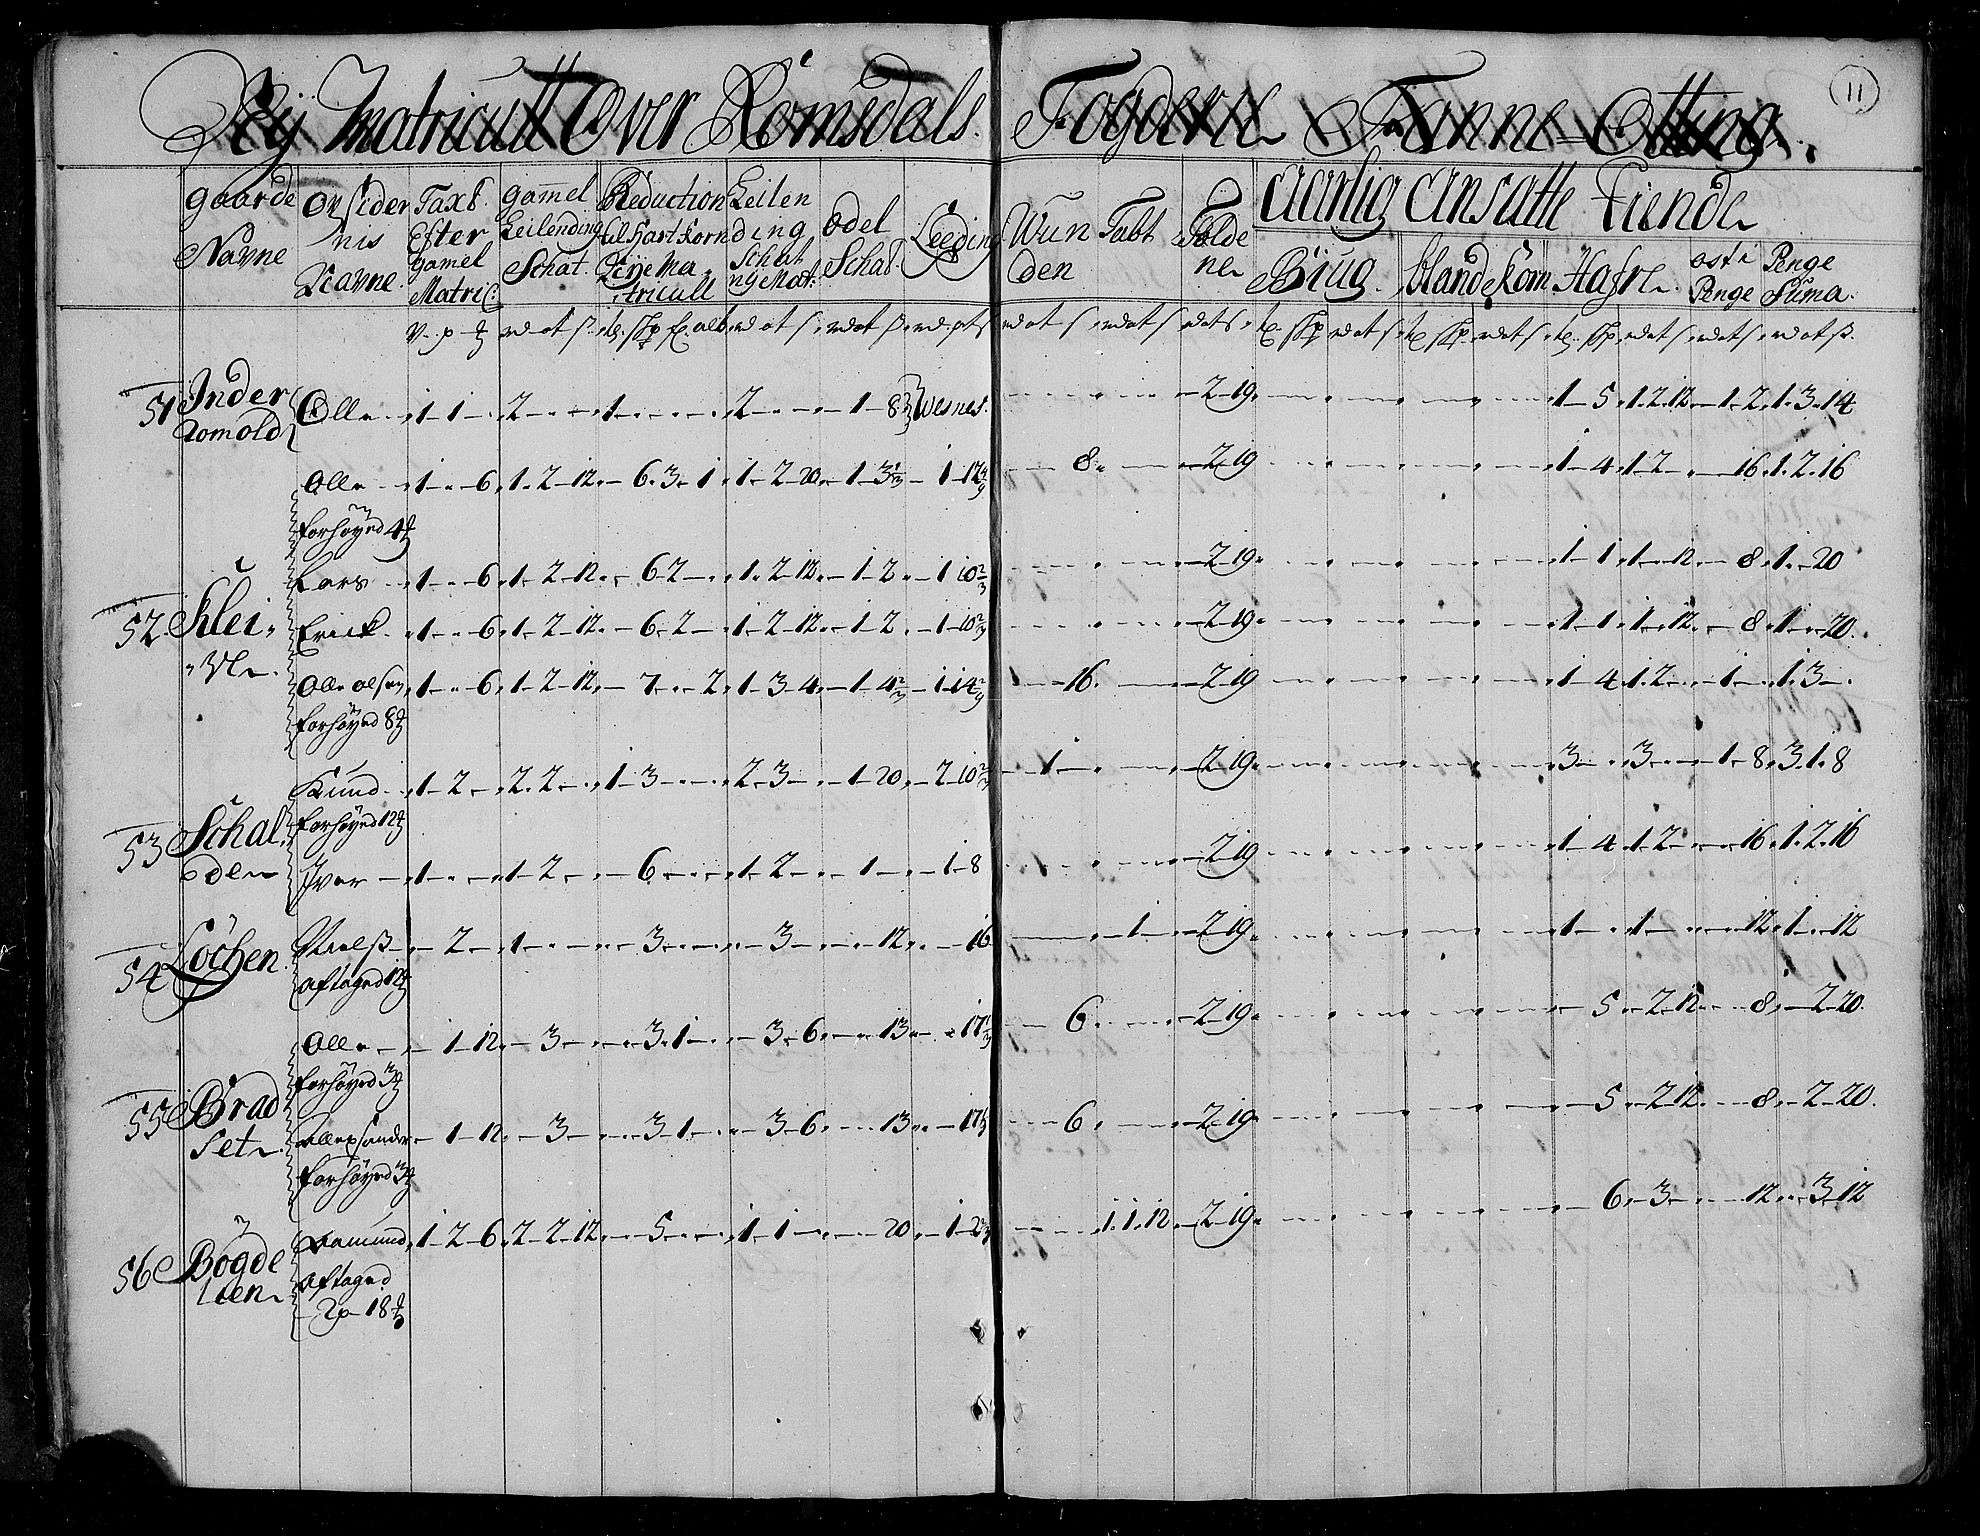 Nÿ Matricull Over Romsdals Fogderie Fanne Otting.
11
gaarde Navne
opsider nis Navne
Taxt Efter gamel Matric:
gamel Leilending Schat
Reduction til Hart Korn Nÿe Ma- tricull
Leilen ding Schat nÿ Mat:
Odel Schat
Leeding
Wun den
Tabt
Tolde ne
Aarlig Ansatte Tiende
Biug
blande Korn
Hafre
oste Penge
Penge Suma
51 Inder Romold Olle 1-1 2 1 2 1-8 Wesnes 2-19 1-5 1.2.12 1-2 1-3-14
Olle 1-6 1-2-12 6-3-1 1-2-20 1-3 1/3 1-12 4/9 8 2-19 1-4 1-2 16 1-2-16
forhøyed 4
52 Klei- ve Lars 1-6 1-2-12 6-2 1-2-12 1-2 1-10 2/3 2-19 1-1 1-12 8 1-20
Erick 1-6 1-2-12 6-2 1-2-12 1-2 1-10 2/3 2-19 1-1 1-12 8 1-20
Olle olsen 1-6 1-2-12 7-2 1-3-4 1-4 2/3 1-14 2/9 16 2-19 1-4 1-2 1 1-3
forhøyed 8
Knud 1-2 2-2 1-3 2-3 1-20 2-10 2/3 1 2-19 3 3 1-8 3-1-8
forhøyed 12
53 Schal den Iver 1 1-2 6 1-2 1 1-8 2-19 1-4 1-2 16 1-2-16
54 Løchen Nielß 2 1 3 3 12 16 1 2-19 1 1 12 1-12
aftaged 12
Olle 1-12 3 3-1 3-6 13 17 1/3 6 2-19 5 2-12 8 2-20
forhøyed 3
55 Brad Set 1-12 3 3-1 3-6 13 17 1/3 6 2-19 5 2-12 8 2-20
forhøyed 3
56 Bøgde Amund 1-2-6 2-2-12 5 1-1 20 1-2 2/3 1-1-12 2-19 6 3 12 3-12
aftaged
2 p 18